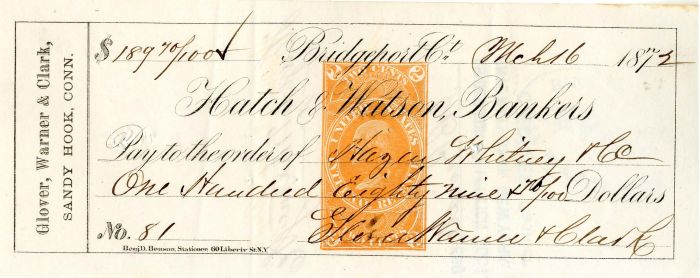 Glover, Warner & Clark,
SANDY HOOK, CONN.
$ 189 70/100 Bridgeport Ct. Mch 16 1872
2 TWO CENTS 2
Hatch & Watson, Bankers
Pay to the order of Hazen Whitney & Co
One Hundred Eighty Nine & 70/100 Dollars
No. 81 Glover Warner & Clark
Benj. D. Benson, Stationer 60 Liberty St. N.Y.